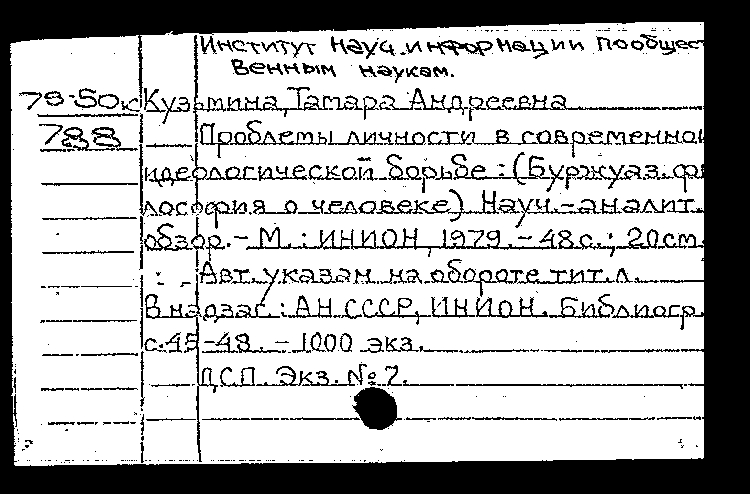 Институт науч. информации по общест
венным наукам.
79-50к Кузьмина, Тамара Андреевна
788 Проблемы личности в современной
идеологической борьбе : (Буржуаз. фи
лософия о человеке) Науч.-аналит.
обзор. - М. : ИНИОН, 1979. - 48с. ; 20см.
Авт. указан на обороте тит. л.
В надзаг. : АН СССР, ИНИОН. Библиогр.
с. 45-48. - 1000 экз.
ДСП. Экз. № 7.